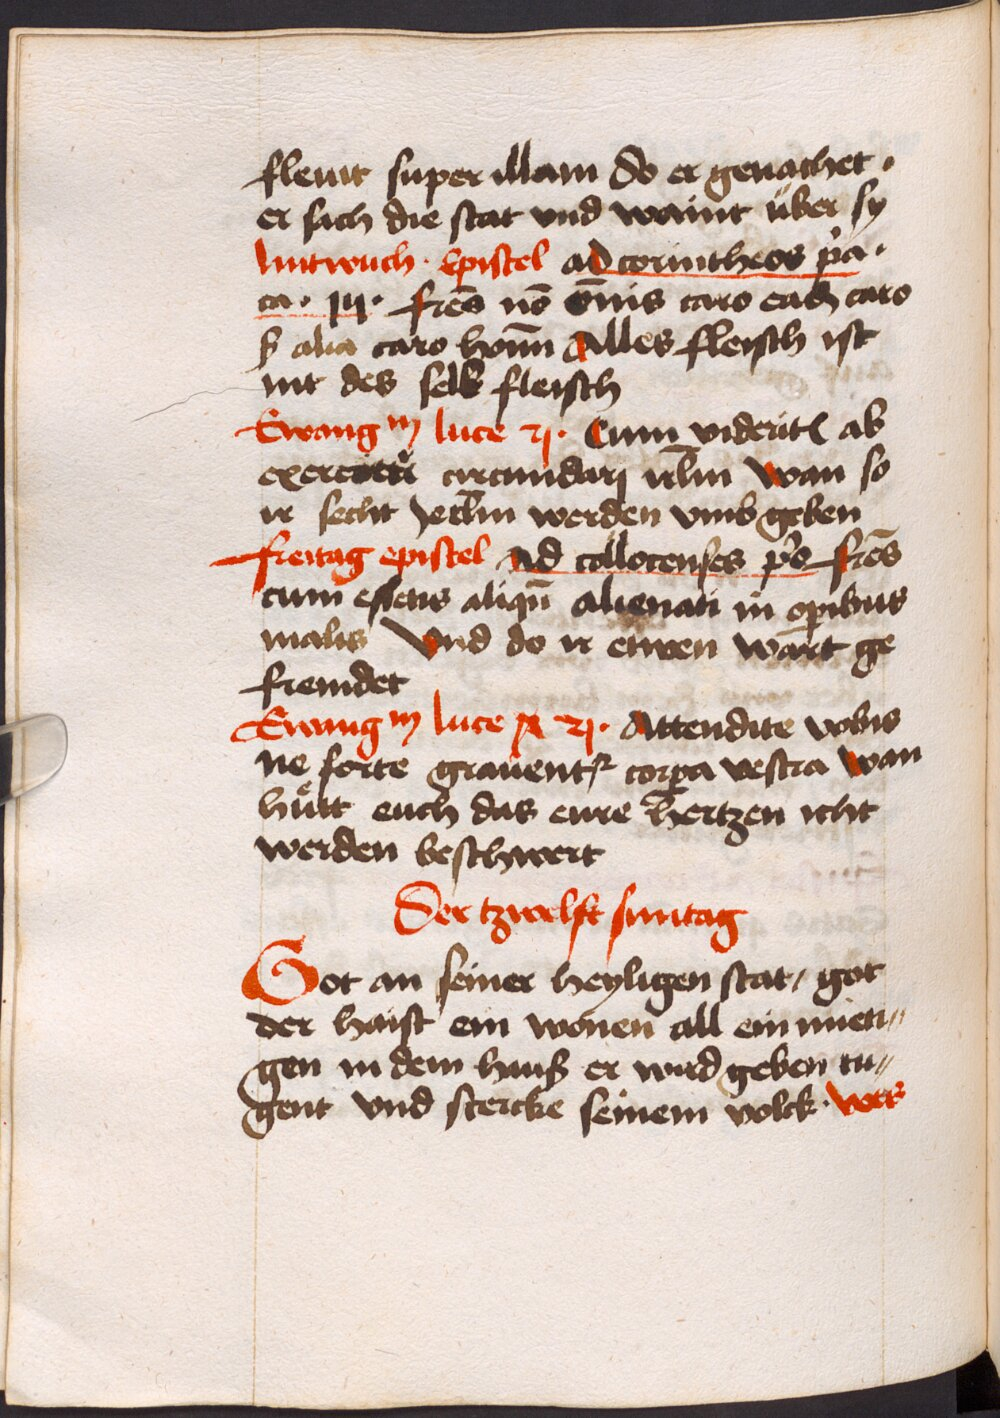 fleuit super illam do er genachet ·
er sach die stat vnd waint über sy
Mitwuch · Epistel ad corintheos p̄a ·
ca · iij · fr̄es nō om̄is caro eadē caro
ß alia caro hoīm Alles fleisch ist
nit des selb fleisch
Ewang m luce 21 · Cum viderit(is) ab
exercitu circumdari irl̄m Wan so
ir secht Jerl̄m werden vmbgeben
freitag epistel ad collocenses p̄s fr̄es
cum essetis aliqn̄ alienati in operibus
malis Vnd do ir etwen wart ge
fremdet
Ewang m luce 21 · Attendite vobis
ne forte grauent(ur) corpa vestra Wan
hütt euch das eure hertzen icht
werden beschwert
Der tzwelft suntag
Got an seiner heyligen stat / got
der haist ein wonen all ein mieti //
gen in dem hauß er wird geben tu //
gent vnd stercke seinem volck · vers